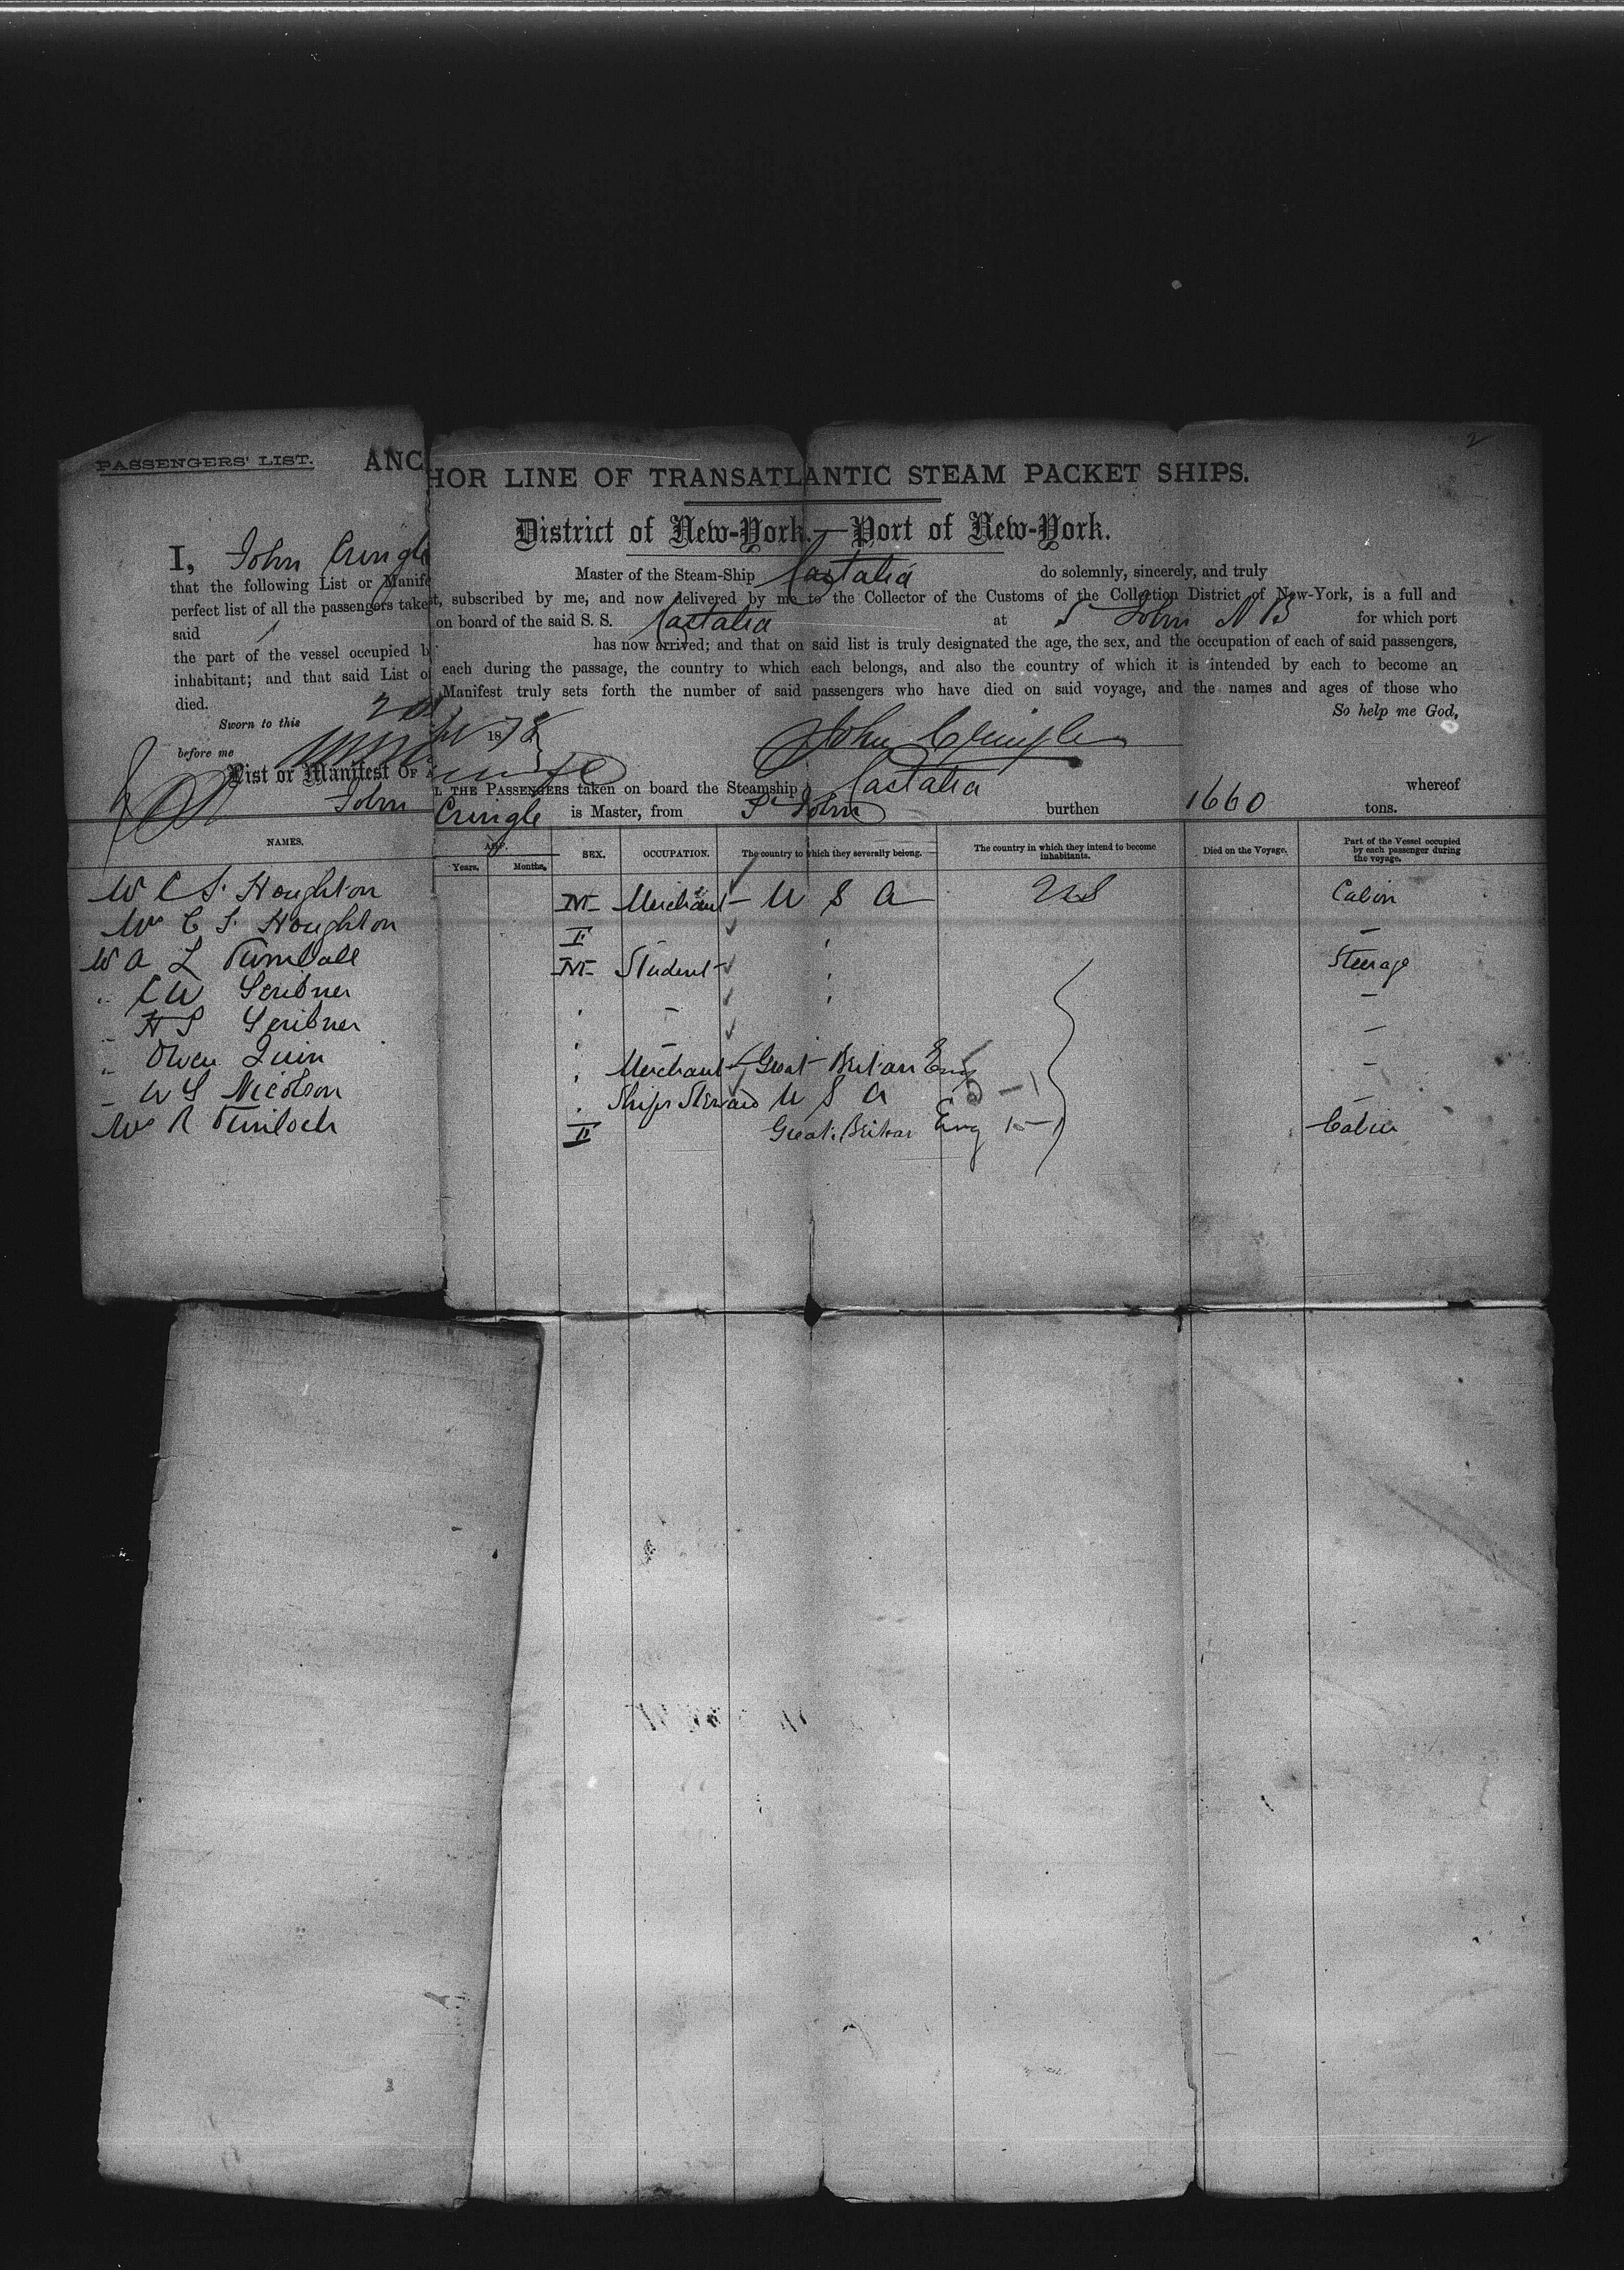 2
PASSENGERS' LIST. ANCHOR LINE OF TRANSATLANTIC STEAM PACKET SHIPS.
District of New-York.—Port of New-York.
I, John Cringle Master of the Steam-Ship Castalia do solemnly, sincerely, and truly
that the following List or Manifest, subscribed by me, and now delivered by me to the Collector of the Customs of the Collection District of New-York, is a full and
perfect list of all the passengers taken on board of the said S. S. Castalia at St John N B for which port
said has now arrived; and that on said list is truly designated the age, the sex, and the occupation of each of said passengers,
the part of the vessel occupied by each during the passage, the country to which each belongs, and also the country of which it is intended by each to become an
inhabitant; and that said List or Manifest truly sets forth the number of said passengers who have died on said voyage, and the names and ages of those who
died. So help me God,
Sworn to this 1878 John Cringle
before me
List or Manifest OF ALL THE PASSENGERS taken on board the Steamship Castalia whereof
John Cringle is Master, from St John burthen 1660 tons.
NAMES. AGE. Years. Months. SEX. OCCUPATION. The country to which they severally belong. The country in which they intend to become inhabitants. Died on the Voyage. Part of the Vessel occupied by each passenger during the voyage.
C S. Houghton M Merchant U S A US Cabin
Mrs C S. Houghton F
A L M Student Steerage
" C W Scribner
" H S Scribner
" Owen Quin Merchant Great Britian Eng
W S Nicolson Ships Steward U S A
Mrs R F Great Britian Eng Cabin